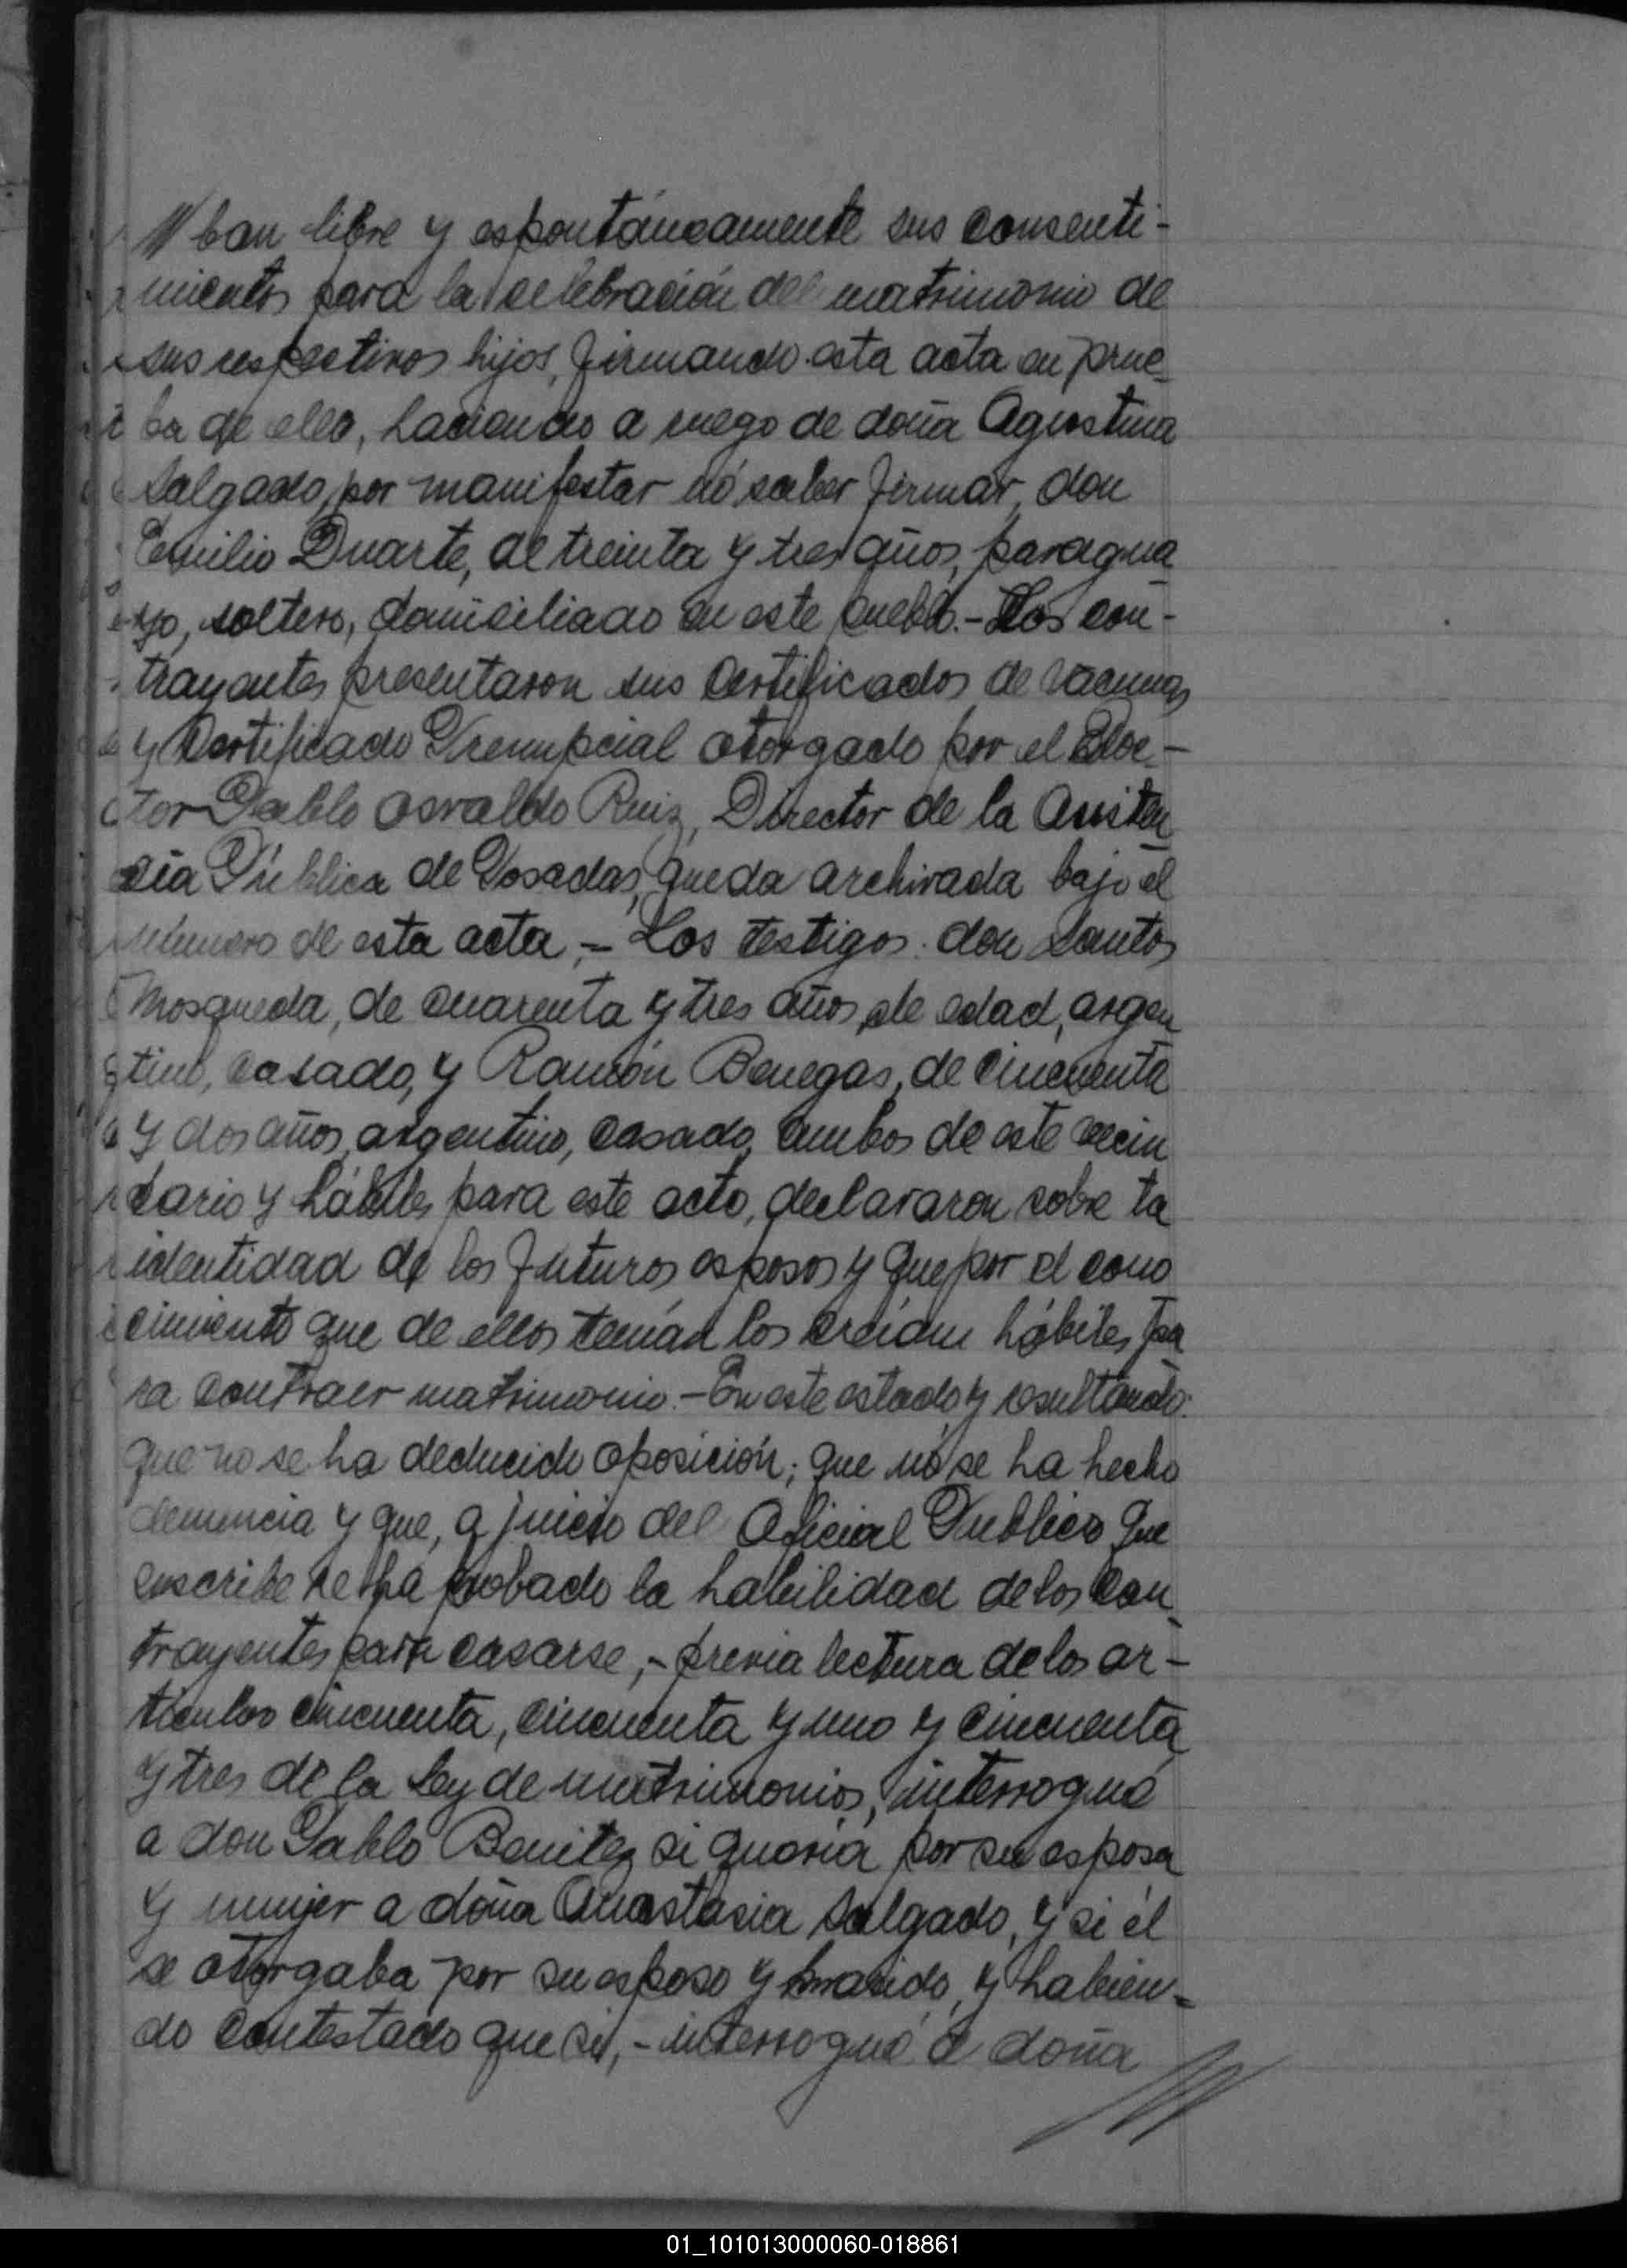 ban libre y espontáneamente sus consenti-
mientos para la celebración del matrimonio de
sus respectivos hijos, firmando esta acta en prue-
ba de ello, haciendo a ruego de doña Agustina
Salgado, por manifestar nó saber firmar, don
Emilio Duarte, de treinta y tres años, paragua-
yo, soltero, domiciliado en este pueblo.- Los con-
trayentes presentaron sus Certificados de vacunas
y Certificado Prenupcial otorgado por el Doc-
tor Pablo Osvaldo Ruiz, Director de la Asisten-
cia Pública de Posadas, queda archivada bajo el
número de esta acta.- Los testigos: don Santos
Mosqueda, de cuarenta y tres años de edad, argen-
tino, casado, y Ramón Benegas, de cincuenta
y dos años, argentino, casado, ambos de este vecin
dario y hábiles para este acto, declararon sobre la
identidad de los futuros esposos y que por el cono
cimiento que de ellos tenían los creían hábiles pa
ra contraer matrimonio.- En este estado y resultando:
que no se ha deducido oposición; que nó se ha hecho
denuncia y que, a juicio del Oficial Publico que
suscribe se ha probado la habilidad de los con-
trayentes para casarse,- previa lectura de los ar-
tículos cincuenta, cincuenta y uno y cincuenta
y tres de la ley de matrimonios, interrogué
a don Pablo Benitez si quería por su esposa
y mujer a doña Anastasia Salgado, y si él
se otorgaba por su esposo y marido, y habien-
do contestado que si,- interrogué a doña
01_101013000060-018861